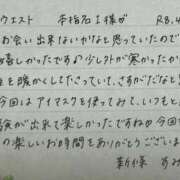 ウエスト 本指名I様が R8.4
お会い出来ないかなと思っていたので
嬉しかったです♪少し外が寒かったか
を暖かくして下さっていて、さすがだなと
今回はアイマスクを使ってみて、いつもと
演が出来て楽しかったですね♡今回
の楽しいお時間をありがとうございま
新條